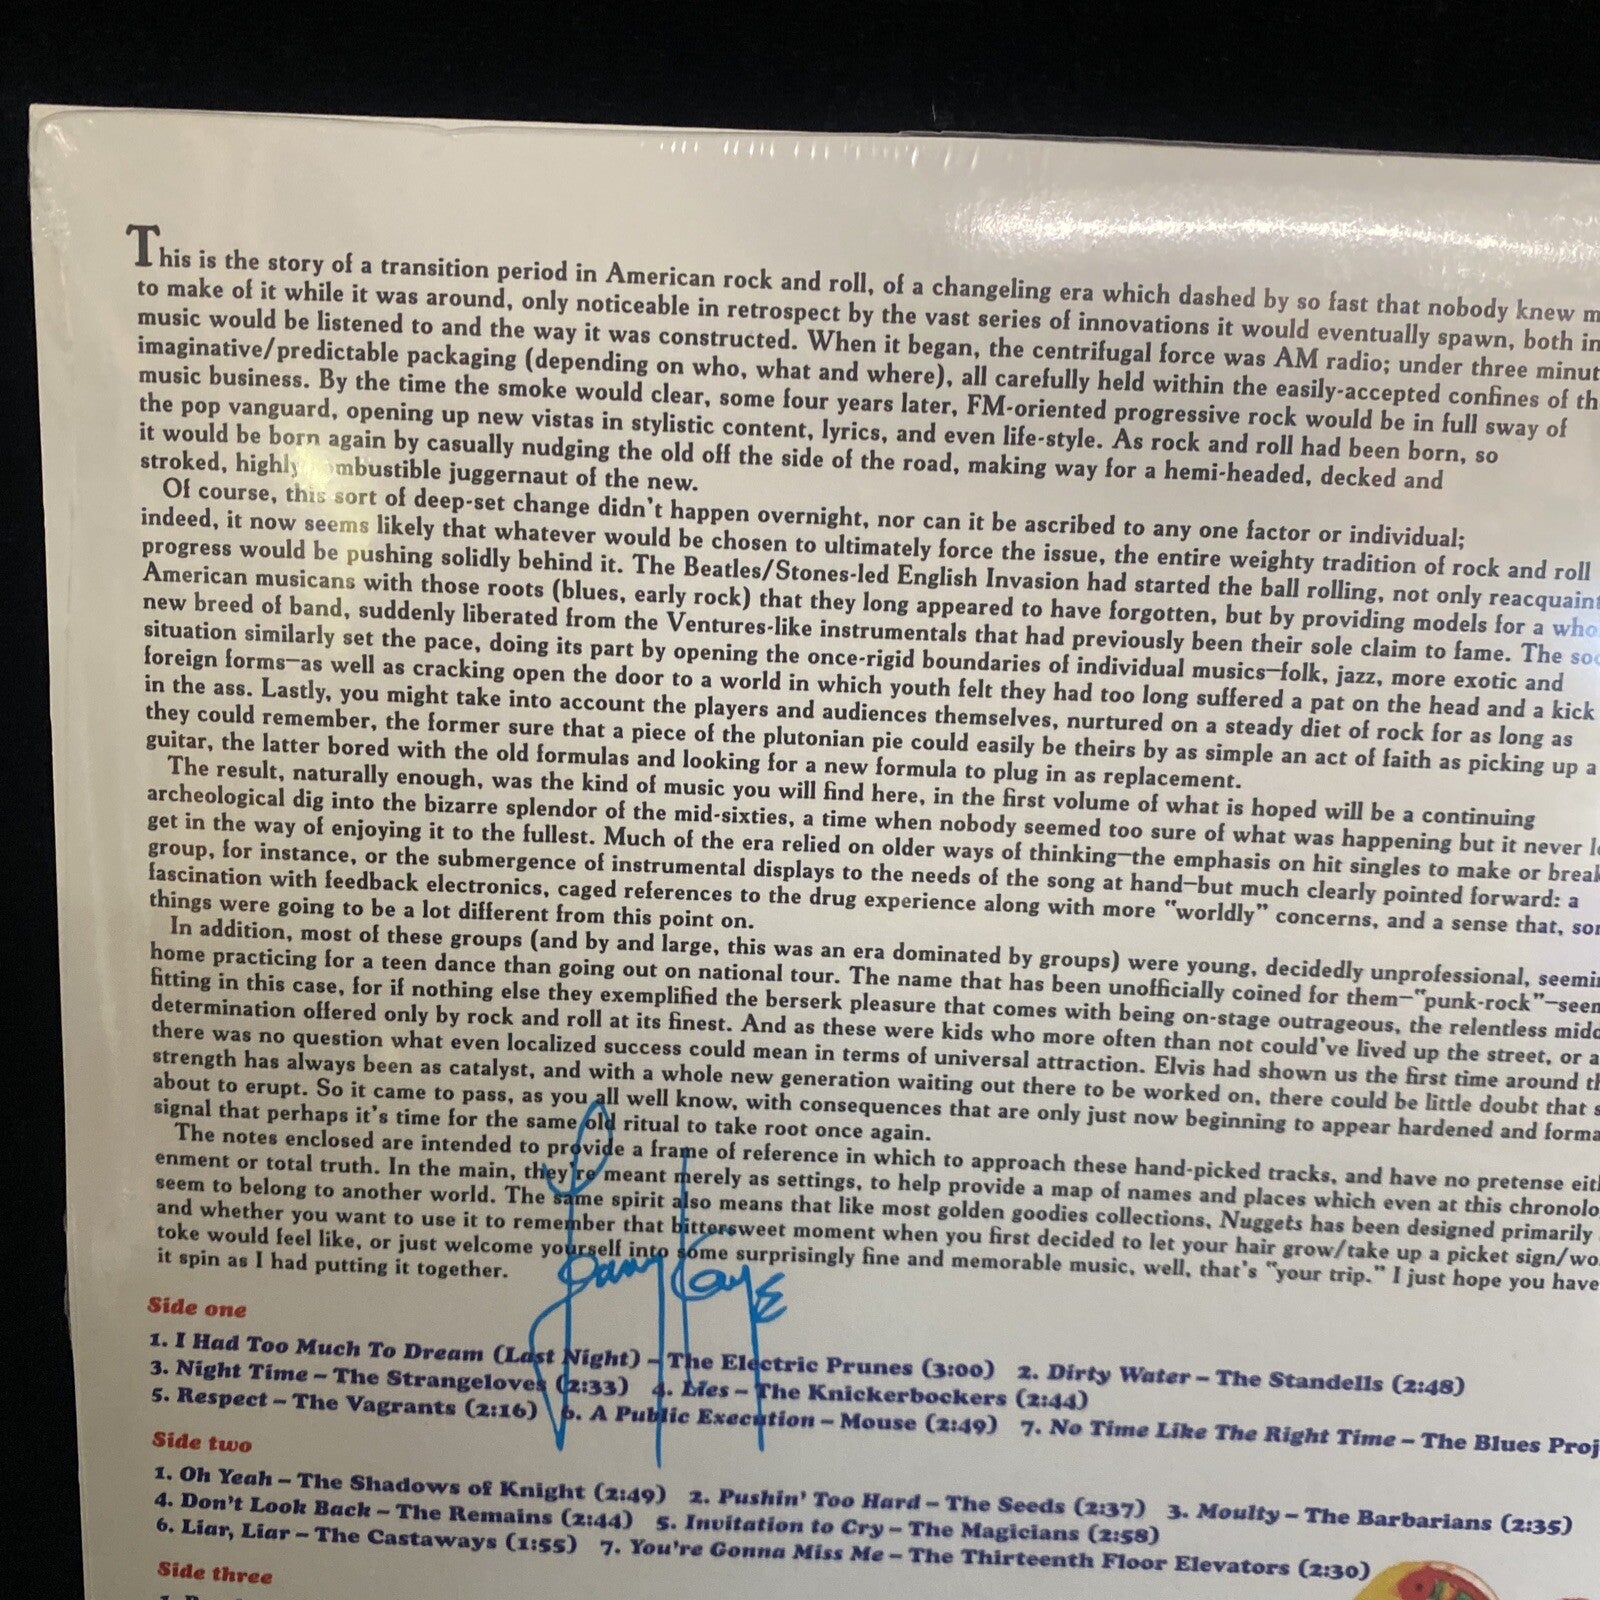 This is the story of a transition period in American rock and roll, of a changeling era which dashed by so fast that nobody knew
to make of it while it was around, only noticeable in retrospect by the vast series of innovations it would eventually spawn, both in
music would be listened to and the way it was constructed. When it began, the centrifugal force was AM radio; under three minut
imaginative/predictable packaging (depending on who, what and where), all carefully held within the easily-accepted confines of th
music business. By the time the smoke would clear, some four years later, FM-oriented progressive rock would be in full sway of
the pop vanguard, opening up new vistas in stylistic content, lyrics, and even life-style. As rock and roll had been born, so
it would be born again by casually nudging the old off the side of the road, making way for a hemi-headed, decked and
stroked, highly ombustible juggernaut of the new.
Of course, this sort of deep-set change didn't happen overnight, nor can it be ascribed to any one factor or individual;
indeed, it now seems likely that whatever would be chosen to ultimately force the issue, the entire weighty tradition of rock and roll
progress would be pushing solidly behind it. The Beatles/Stones-led English Invasion had started the ball rolling, not only reacquaint
American musicans with those roots (blues, early rock) that they long appeared to have forgotten, but by providing models for a who
new breed of band, suddenly liberated from the Ventures-like instrumentals that had previously been their sole claim to fame. The soc
situation similarly set the pace, doing its part by opening the once-rigid boundaries of individual musics—folk, jazz, more exotic and
foreign forms—as well as cracking open the door to a world in which youth felt they had too long suffered a pat on the head and a kick
in the ass. Lastly, you might take into account the players and audiences themselves, nurtured on a steady diet of rock for as long as
they could remember, the former sure that a piece of the plutonian pie could easily be theirs by as simple an act of faith as picking up a
guitar, the latter bored with the old formulas and looking for a new formula to plug in as replacement.
The result, naturally enough, was the kind of music you will find here, in the first volume of what is hoped will be a continuing
archeological dig into the bizarre splendor of the mid-sixties, a time when nobody seemed too sure of what was happening but it never l
get in the way of enjoying it to the fullest. Much of the era relied on older ways of thinking—the emphasis on hit singles to make or break
group, for instance, or the submergence of instrumental displays to the needs of the song at hand—but much clearly pointed forward: a
fascination with feedback electronics, caged references to the drug experience along with more "worldly" concerns, and a sense that, som
things were going to be a lot different from this point on.
In addition, most of these groups (and by and large, this was an era dominated by groups) were young, decidedly unprofessional, seemin
home practicing for a teen dance than going out on national tour. The name that has been unofficially coined for them—"punk-rock"—seem
fitting in this case, for if nothing else they exemplified the berserk pleasure that comes with being on-stage outrageous, the relentless midd
determination offered only by rock and roll at its finest. And as these were kids who more often than not could've lived up the street, or a
there was no question what even localized success could mean in terms of universal attraction. Elvis had shown us the first time around th
strength has always been as catalyst, and with a whole new generation waiting out there to be worked on, there could be little doubt that s
about to erupt. So it came to pass, as you all well know, with consequences that are only just now beginning to appear hardened and forma
signal that perhaps it's time for the same old ritual to take root once again.
The notes enclosed are intended to provide a frame of reference in which to approach these hand-picked tracks, and have no pretense eith
enment or total truth. In the main, they're meant merely as settings, to help provide a map of names and places which even at this chronolo
seem to belong to another world. The same spirit also means that like most golden goodies collections, Nuggets has been designed primarily
and whether you want to use it to remember that bittersweet moment when you first decided to let your hair grow/take up a picket sign/wo
toke would feel like, or just welcome yourself into some surprisingly fine and memorable music, well, that's "your trip." I just hope you have
it spin as I had putting it together.
Lenny Kaye
Side one
1. I Had Too Much To Dream (Last Night) – The Electric Prunes (3:00) 2. Dirty Water – The Standells (2:48)
3. Night Time – The Strangeloves (2:33) 4. Lies – The Knickerbockers (2:44)
5. Respect – The Vagrants (2:16) 6. A Public Execution – Mouse (2:49) 7. No Time Like The Right Time – The Blues Proj
Side two
1. Oh Yeah – The Shadows of Knight (2:49) 2. Pushin' Too Hard – The Seeds (2:37) 3. Moulty – The Barbarians (2:35)
4. Don't Look Back – The Remains (2:44) 5. Invitation to Cry – The Magicians (2:58)
6. Liar, Liar – The Castaways (1:55) 7. You're Gonna Miss Me – The Thirteenth Floor Elevators (2:30)
Side three